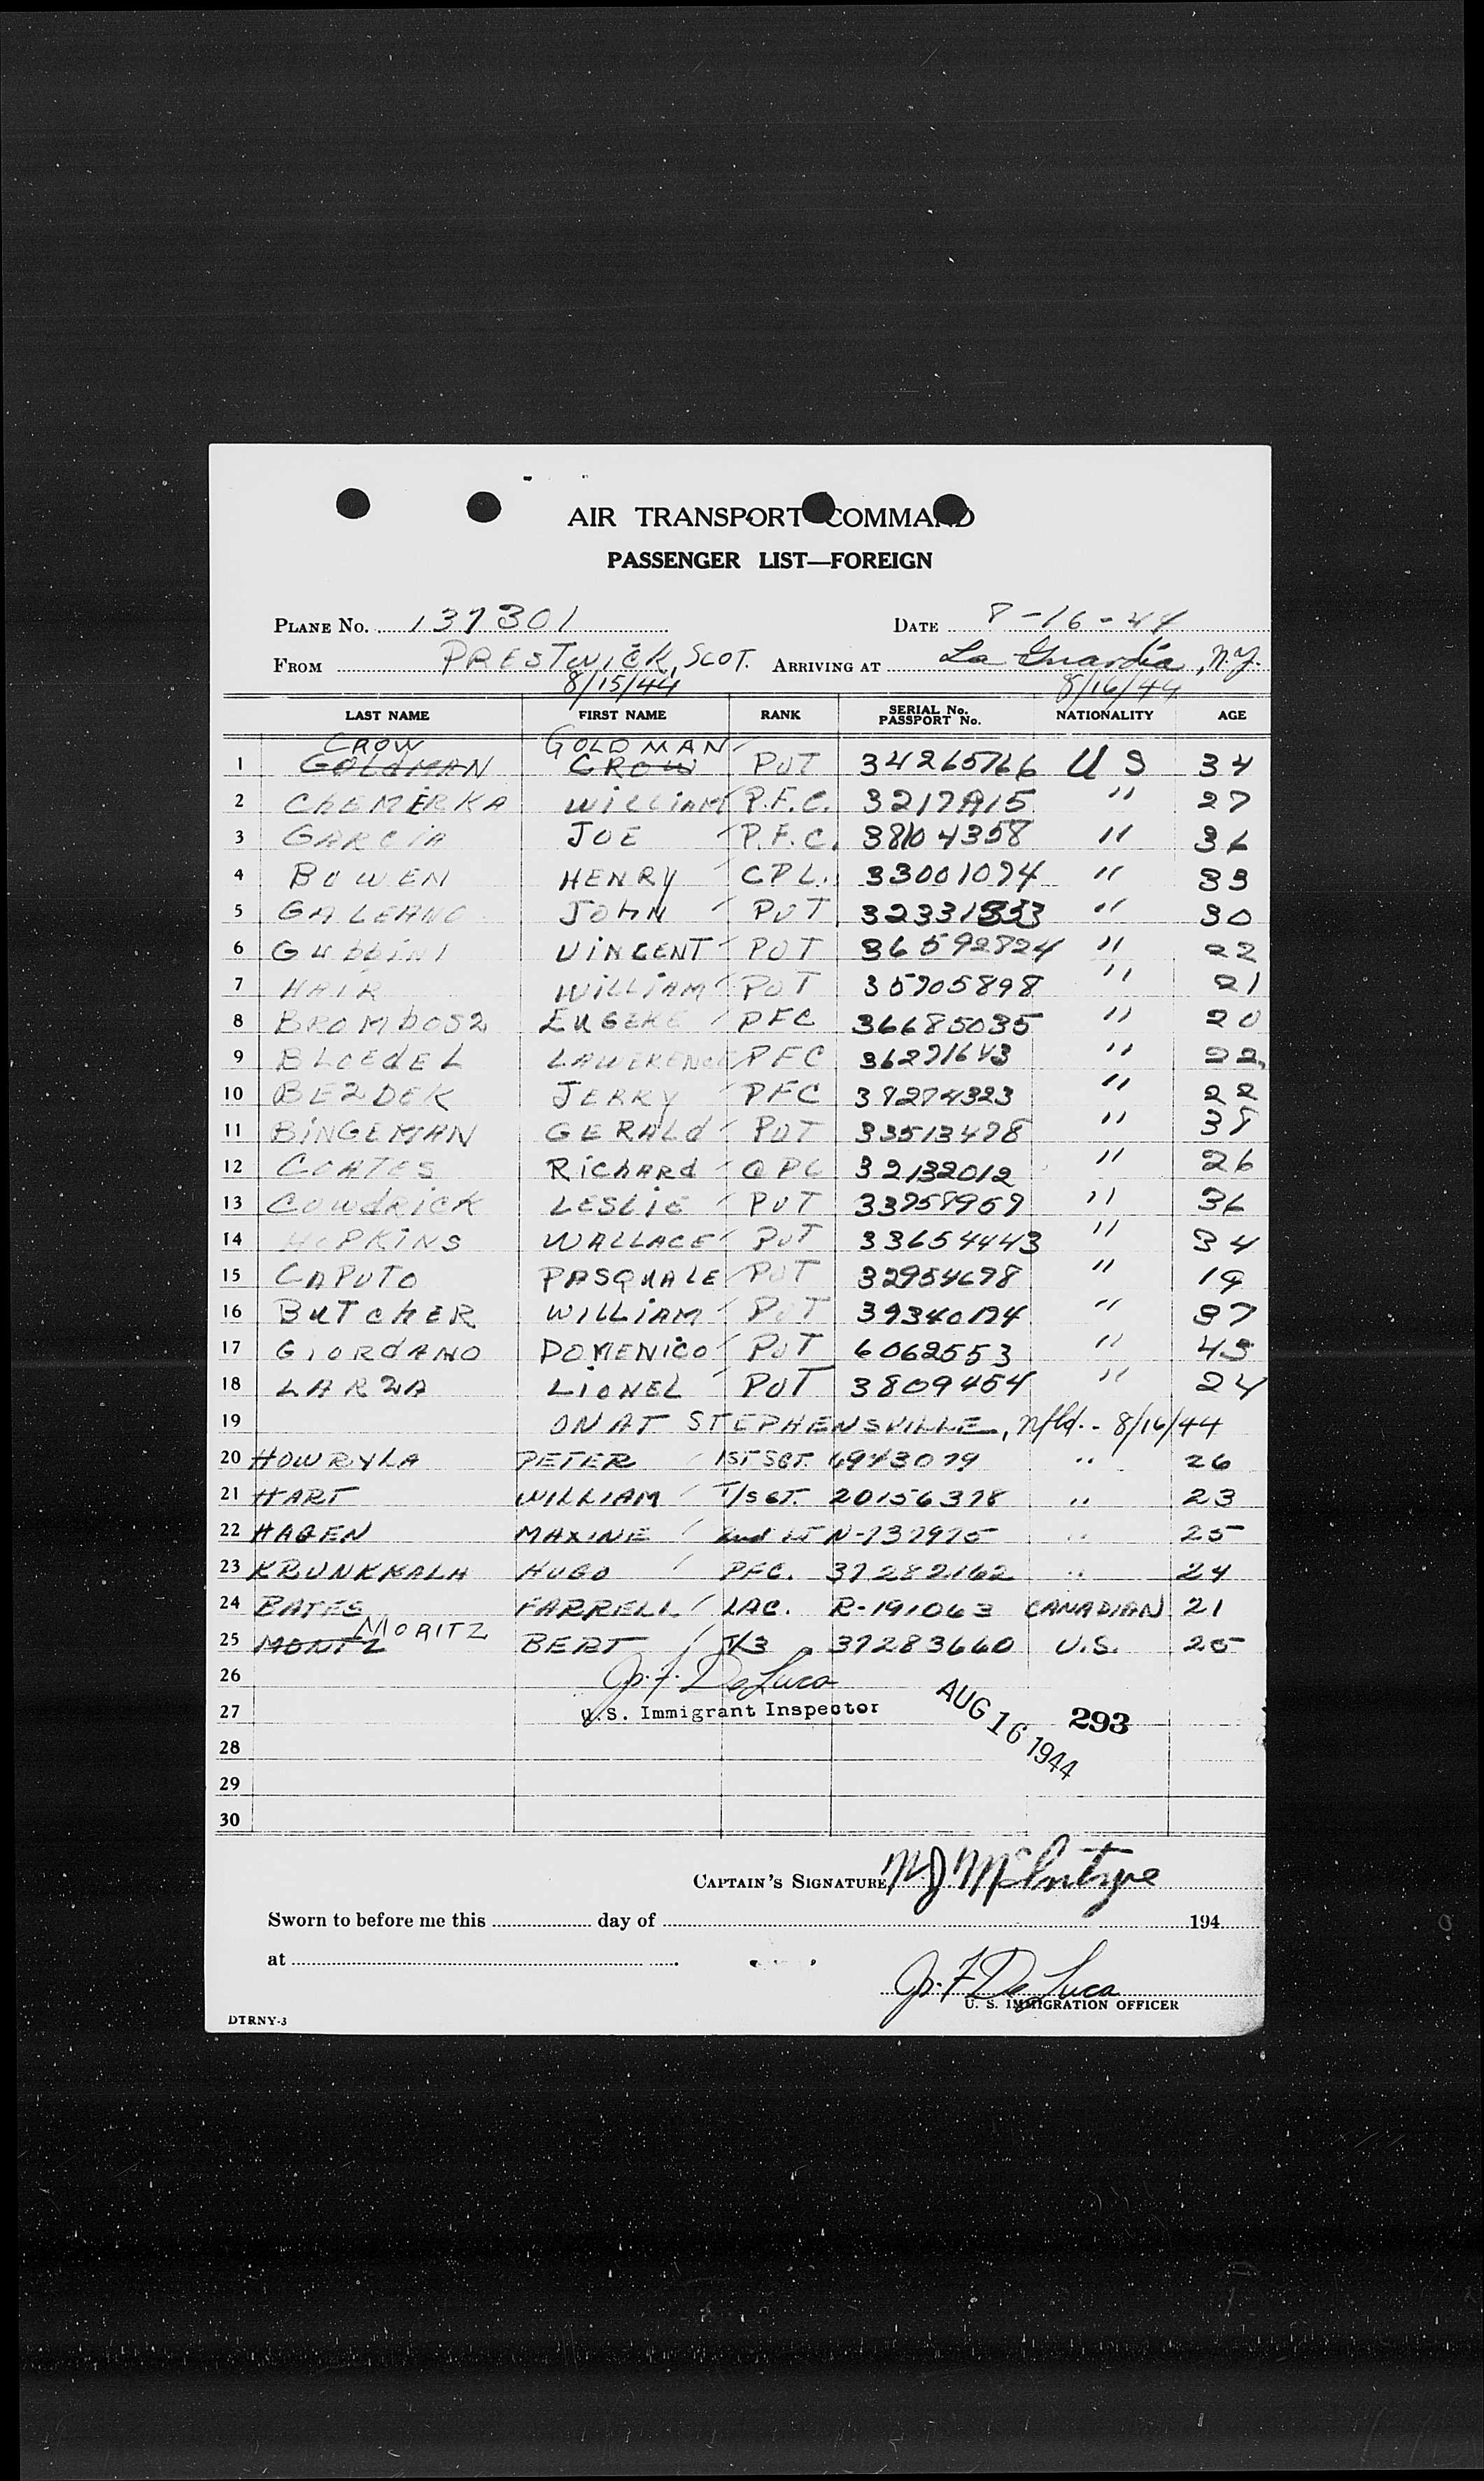 AIR TRANSPORT COMMAND
PASSENGER LIST—FOREIGN
PLANE No. 137301 DATE 8-16-44
FROM PRESTWICK, SCOT. ARRIVING AT La Guardia, N.Y.
8/15/44 8/16/44
LAST NAME FIRST NAME RANK SERIAL No. PASSPORT No. NATIONALITY AGE
CROW GOLDMAN
1 GOLDMAN CROW PVT 34265766 US 34
2 CHEMERKA WILLIAM P.F.C. " 27
3 GARCIA JOE P.F.C. 38104358 " 36
4 BOWEN HENRY CPL. 33001094 " 33
5 GALEANO JOHN PVT 32331853 " 30
6 GUBBINI VINCENT PVT 36592824 " 22
7 HAIR WILLIAM PVT 35705898 " 21
8 BROMBOSZ EUGENE PFC 36685035 " 20
9 BLOEDEL LAWERENCE PFC 36271643 " 22
10 BEZDEK JERRY PFC " 22
11 BINGEMAN GERALD PVT 33513498 " 38
12 COATES RICHARD CPL 32132012 " 26
13 COWDRICK LESLIE PVT " 36
14 HOPKINS WALLACE PVT 33654443 " 34
15 CAPUTO PASQUALE PVT 32954698 " 19
16 BUTCHER WILLIAM PVT " 37
17 GIORDANO DOMENICO PVT 6062553 " 43
18 LARZA LIONEL PVT 3809454 " 24
19 ON AT STEPHENSVILLE, Nfld. - 8/16/44
20 HOWRYLA PETER 1ST SGT. 6943079 " 26
21 HART WILLIAM T/SGT. 20156378 " 23
22 HAGEN MAXINE 2nd LT N-737975 " 25
23 KRUNKKALA HUGO PFC. 37282162 " 24
24 BATES FARRELL LAC. R-191063 CANADIAN 21
25 MONTZ MORITZ BERT T/3 37283660 U.S. 25
26 Jo. F. DeLuca
27 U.S. Immigrant Inspector AUG 16 1944 293
28
29
30
CAPTAIN'S SIGNATURE McIntyre
Sworn to before me this day of 194
at
Jo. F. DeLuca
U. S. IMMIGRATION OFFICER
DTRNY-3